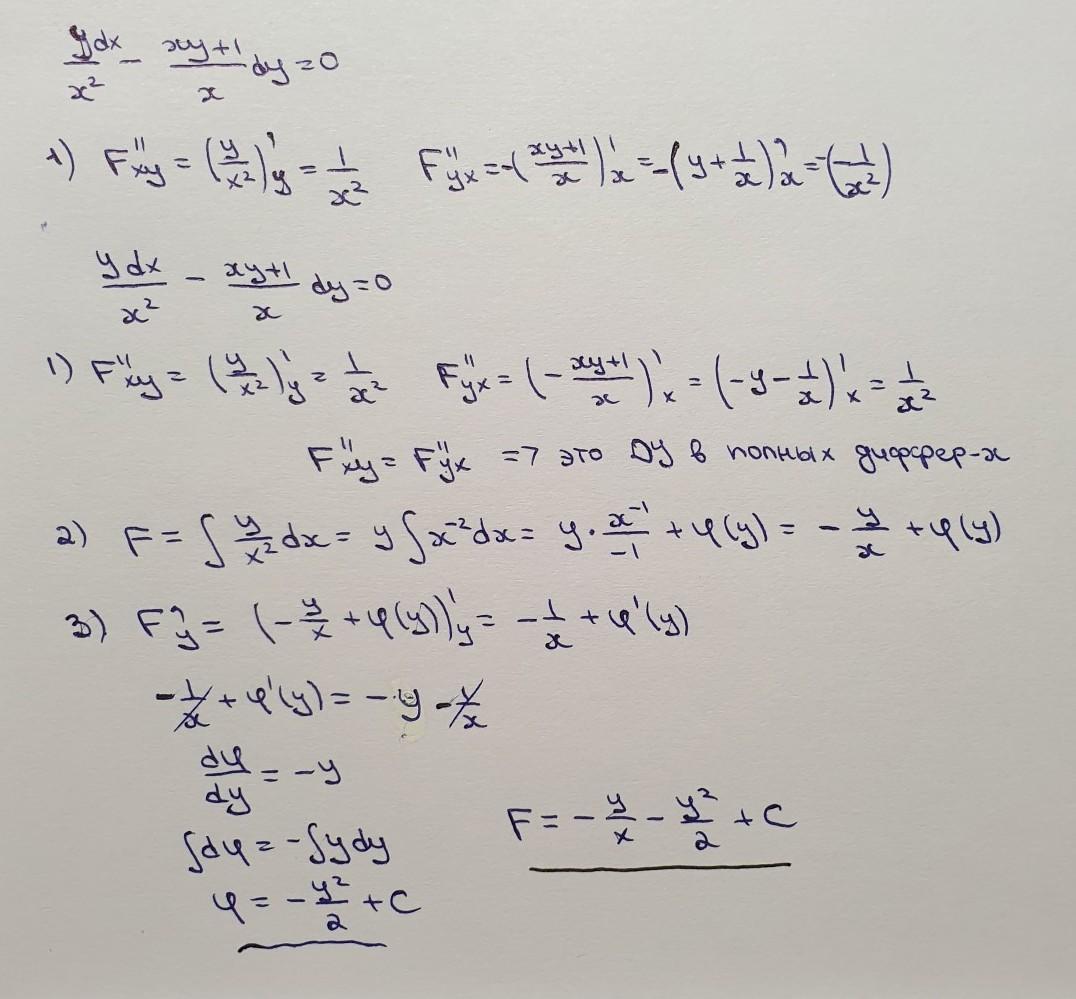 ydx/x² - (xy+1)/x dy = 0
1) F''xy = (y/x²)'y = 1/x² F''yx = -((xy+1)/x)'x = -(y + 1/x)'x = -(-1/x²)
ydx/x² - (xy+1)/x dy = 0
1) F''xy = (y/x²)'y = 1/x² F''yx = (-(xy+1)/x)'x = (-y - 1/x)'x = 1/x²
F''xy = F''yx => это ДУ в полных диффер-х
2) F = ∫ y/x² dx = y ∫ x⁻² dx = y · x⁻¹/-1 + φ(y) = - y/x + φ(y)
3) F'y = (- y/x + φ(y))'y = - 1/x + φ'(y)
- 1/x + φ'(y) = - y - 1/x
dφ/dy = -y
∫dφ = -∫ydy
φ = - y²/2 + C
F = - y/x - y²/2 + C